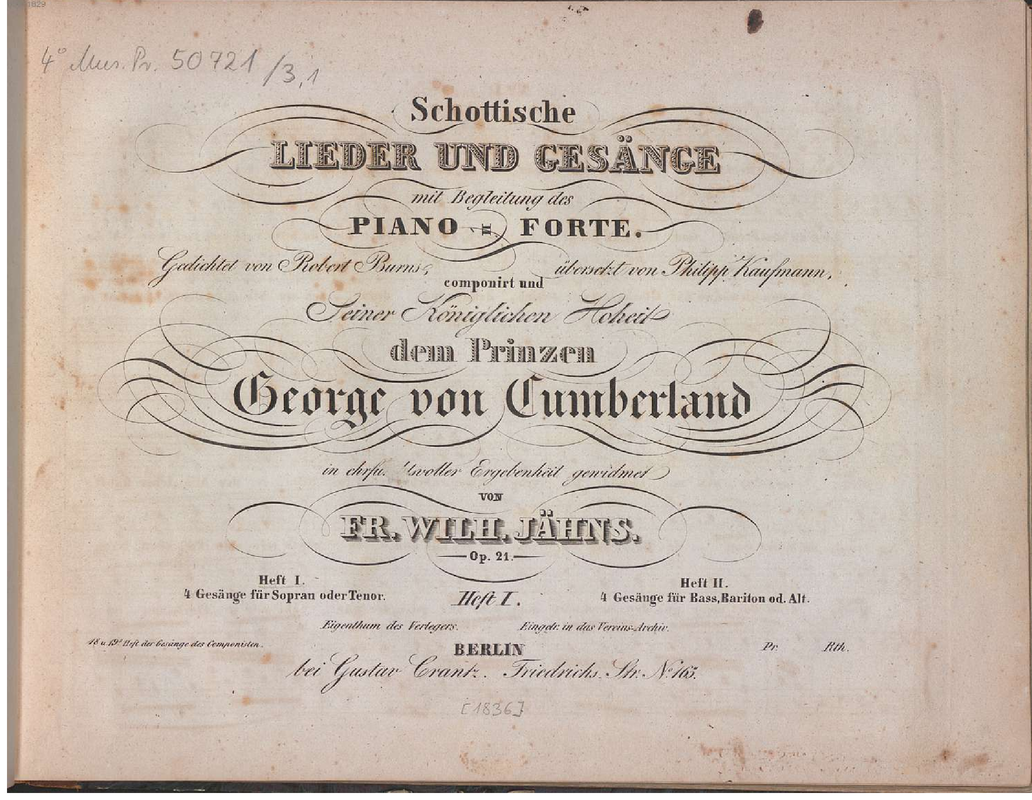 4° Mus. Pr. 50721/3,1
Schottische
LIEDER UND GESÄNGE
mit Begleitung des
PIANO FORTE.
Gedichtet von Robert Burns, übersetzt von Philipp Kaufmann,
componirt und
Seiner Königlichen Hoheit
dem Prinzen
George von Cumberland
in Ergebenheit gewidmet
VON
FR. WILH. JÄHNS.
Op. 21.
Heft I. Heft II.
4 Gesänge für Sopran oder Tenor. Heft I. 4 Gesänge für Bass, Bariton od. Alt.
Eigenthum des Verlegers. Eingetr. in das Vereins-Archiv.
18 u 19s Heft der Gesänge des Componisten. BERLIN Pr. Rth.
bei Gustav Crantz. Friedrichs. Str. No. 165.
[1836]